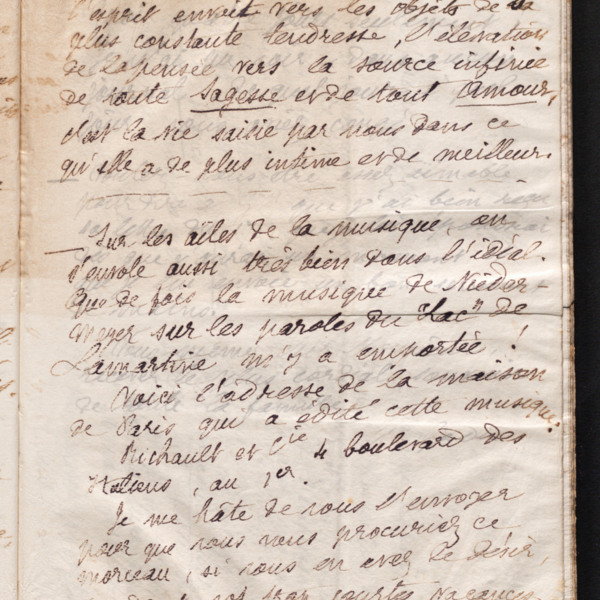 l'esprit envoit vers les objets de sa
plus constante tendresse, l'élévation
de la pensée vers la source infinie
de toute Sagesse et de tout Amour,
c'est la vie saisie par nous dans ce
qu'elle a de plus intime et de meilleur.
— Sur les aîles de la musique, on
s'envole aussi très bien dans l'idéal.
Que de fois la musique de Nieder-
meyer sur les paroles du "Lac" de
Lamartine m'y a emportée !
Voici l'adresse de la maison
de Paris qui a édité cette musique.
Richault et Cie 4 boulevard des
Italiens, au 1er.
Je me hâte de vous l'envoyer
pour que vous vous procuriez ce
morceau, si vous en avez le désir,
courtes vacances